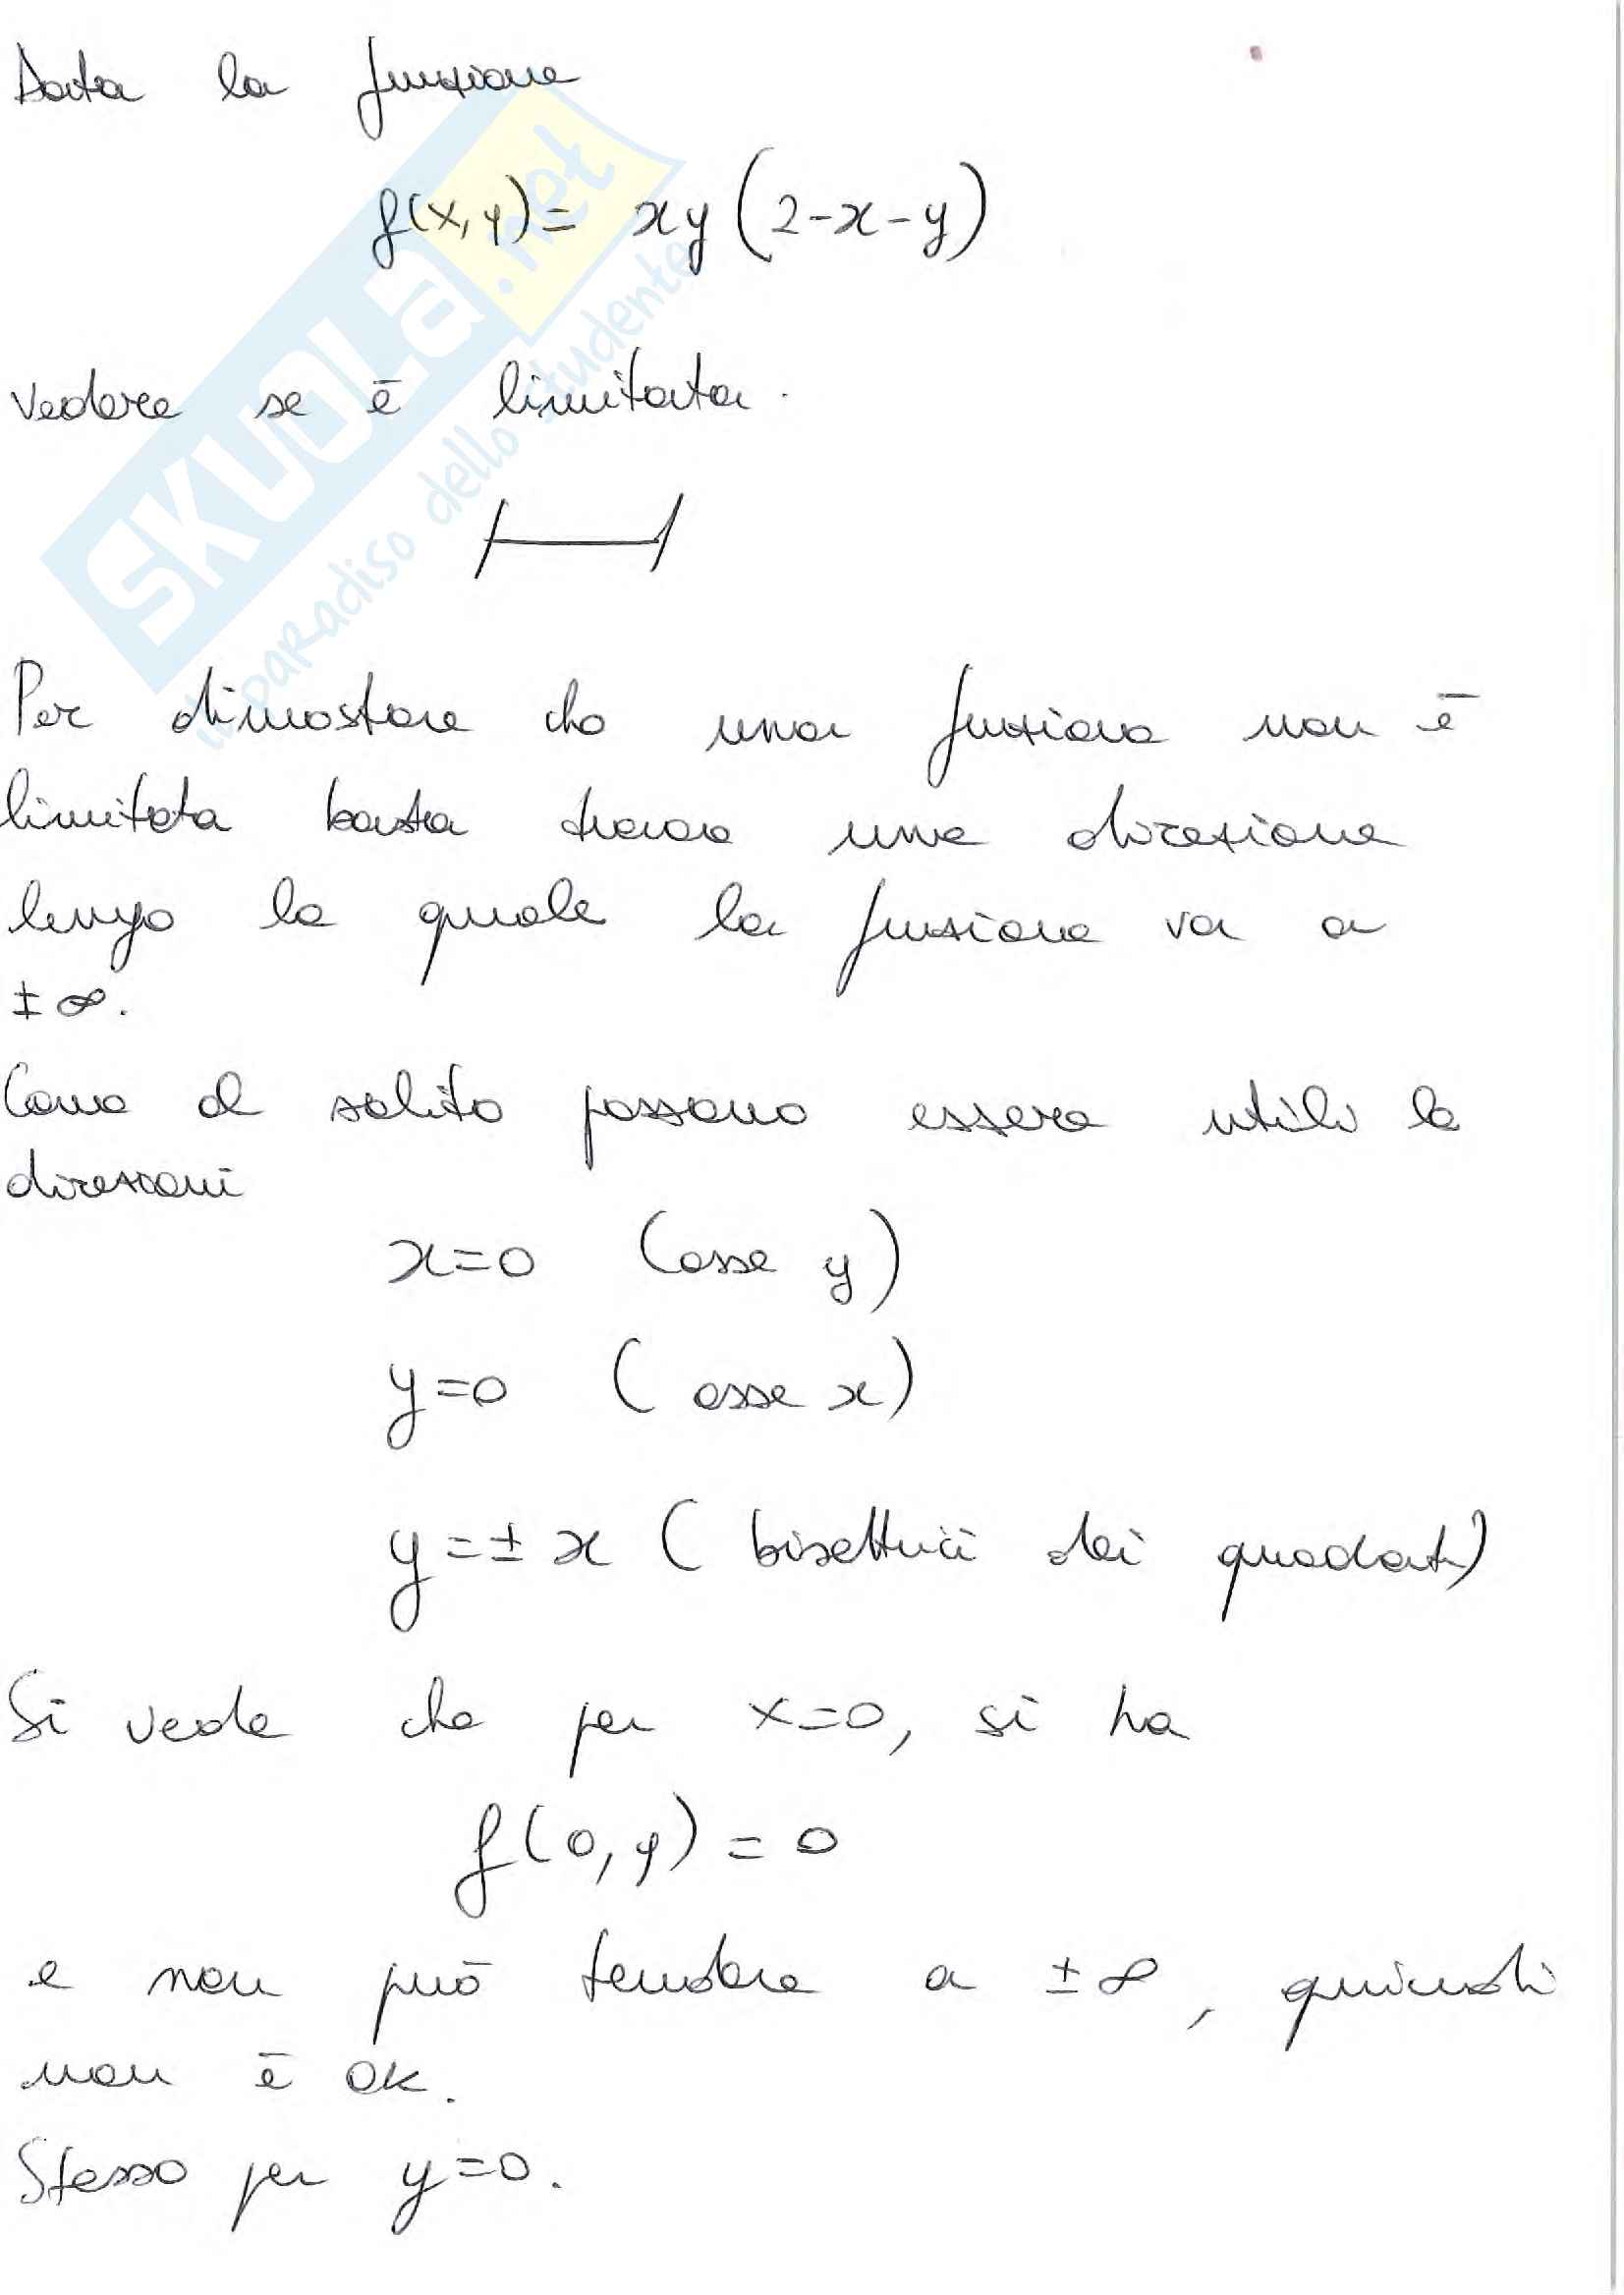 Data la funzione
f(x,y)= xy(2-x-y)
vedere se è limitata.
Per dimostrare che una funzione non è
limitata basta trovare una direzione
lungo la quale la funzione va a
±∞.
Come al solito possono essere utili le
direzioni
x=0 (asse y)
y=0 (asse x)
y=±x (bisettrici dei quadrati)
Si vede che per x=0, si ha
f(0,y)=0
e non può tendere a ±∞, quindi
non è ok.
Stesso per y=0.
SKUOLA.net
il paradiso dello studente